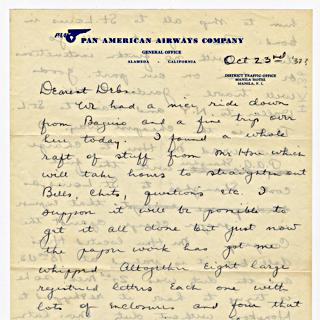 PAN AMERICAN AIRWAYS COMPANY
GENERAL OFFICE
ALAMEDA • CALIFORNIA
Oct 23rd
DISTRICT TRAFFIC OFFICE
MANILA HOTEL
MANILA, P. I.
Dearest Debs:
We had a nice ride down
from Baguio and a fine trip over
here today. I found a whole
raft of stuff from Mr Hsu which
will take hours to straighten out
Bills, chits, questions etc. I
suppose it will be possible to
get it all done but just now
the paper work has got me
whipped. Altogether eight large
registered letters each one with
lots of enclosures and four that